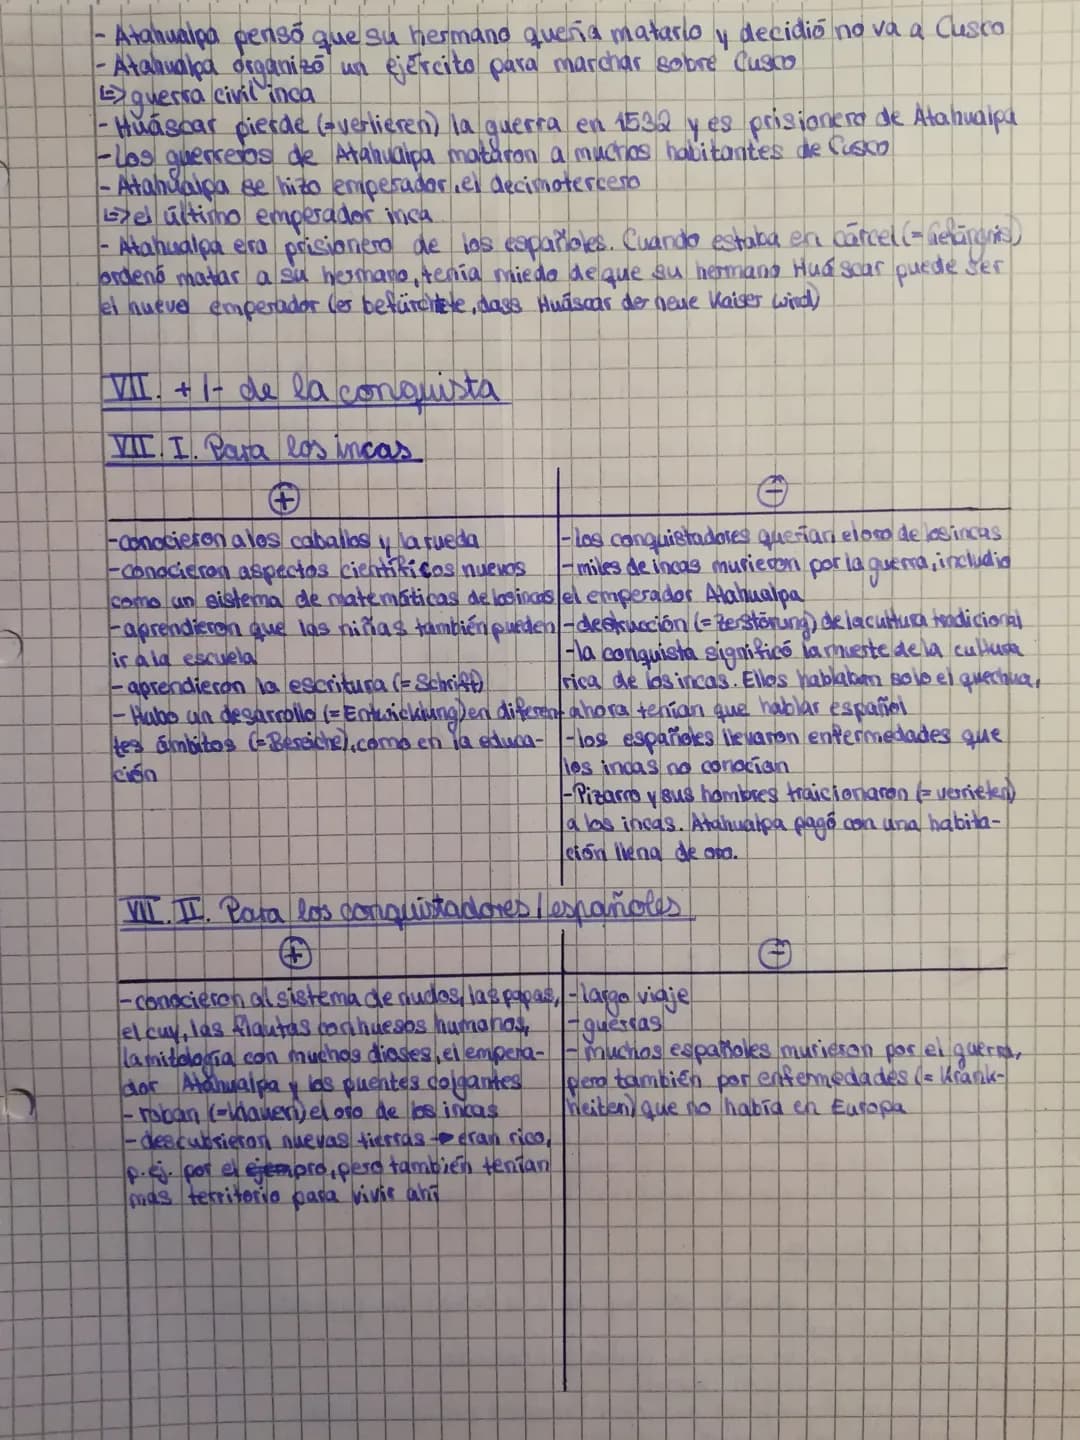 - Atahualpa pensó que su hermano quería matarlo y decidió no va a Cusco
- Atahualpa organizó un ejército para marchar sobre Cusco
↳ guerra civil inca
- Huáscar pierde (=verlieren) la guerra en 1532 y es prisionero de Atahualpa
- Los guerreros de Atahualpa mataron a muchos habitantes de Cusco
- Atahualpa se hizo emperador, el decimotercero
↳ el último emperador inca
- Atahualpa era prisionero de los españoles. Cuando estaba en cárcel (= Gefängnis)
ordenó matar a su hermano, tenía miedo de que su hermano Huáscar puede ser
el nuevo emperador (er befürchtete, dass Huáscar der neue Kaiser wird)
VII. + / - de la conquista
VII. I. Para los incas
+
-
- conocieron a los caballos y la rueda
- conocieron aspectos científicos nuevos
como un sistema de matemáticas de los incas
- aprendieron que las niñas también pueden
ir a la escuela
- aprendieron la escritura (= Schrift)
- Hubo un desarrollo (= Entwicklung) en diferen-
tes ámbitos (= Bereiche), como en la educa-
ción
- los conquistadores querían el oro de los incas
- miles de incas murieron por la guerra, includio
el emperador Atahualpa
- destrucción (= Zerstörung) de la cultura tradicional
- la conquista significó la muerte de la cultura
rica de los incas. Ellos hablaban solo el quechua,
ahora tenían que hablar español
- los españoles llevaron enfermedades que
los incas no conocían
- Pizarro y sus hombres traicionaron (= verrieten)
a los incas. Atahualpa pagó con una habita-
ción llena de oro.
VII. II. Para los conquistadores / españoles
+
-
- conocieron al sistema de nudos, las papas,
el cuy, las flautas con huesos humanos,
la mitología con muchos dioses, el empera-
dor Atahualpa y los puentes colgantes
- roban (= klauen) el oro de los incas
- descubrieron nuevas tierras → eran rico,
p. ej. por el ejempro, pero también tenían
más territorio para vivir ahí
- largo viaje
- guerras
- muchos españoles murieron por el guerra,
pero también por enfermedades (= Krank-
heiten) que no había en Europa